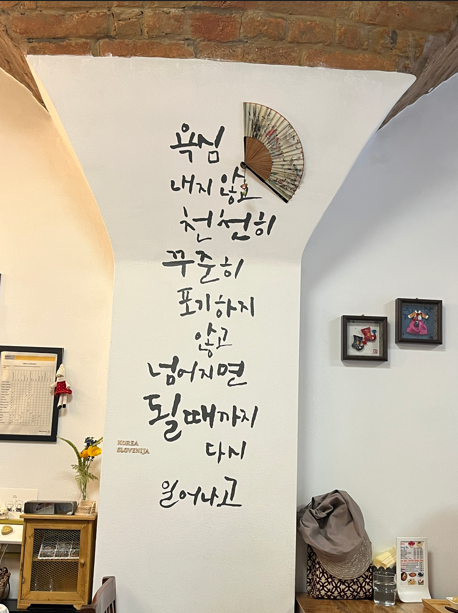 욕심
내지 않고
천천히
꾸준히
포기하지
않고
넘어지면
될때까지
다시
일어나고
KOREA
SLOVENIJA